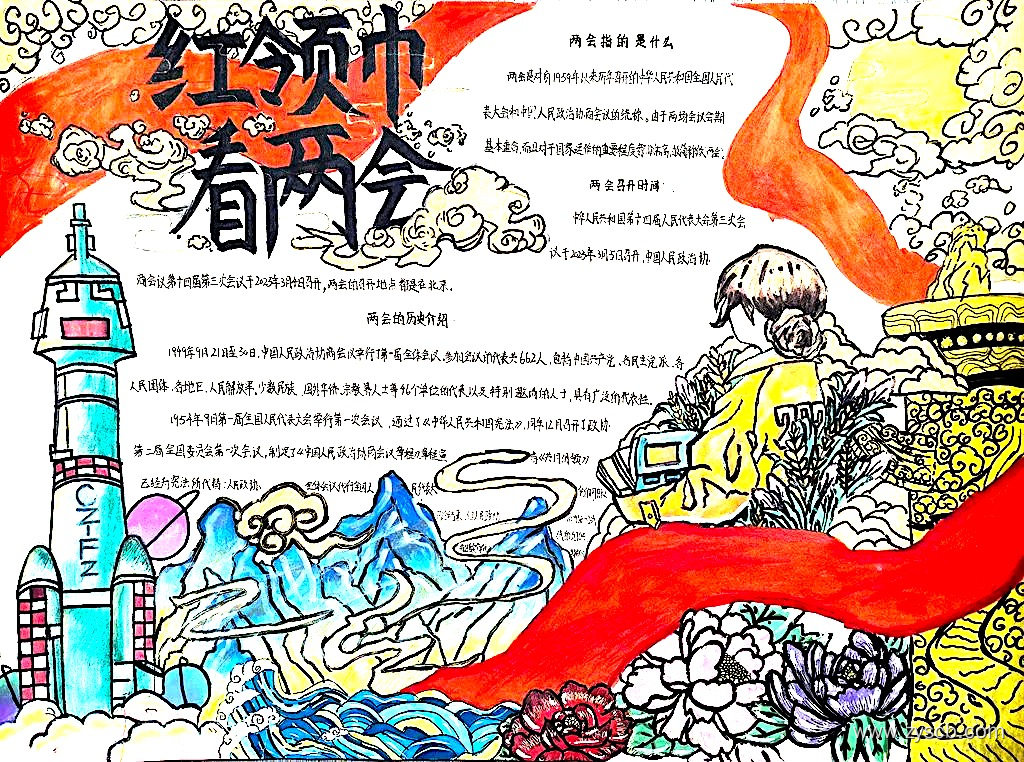 红领巾
看两会
两会指的是什么
两会是对自1959年以来历年召开的中华人民共和国全国人民代
表大会和中国人民政治协商会议的统称。由于两场会议会期
基本重合，而且对于国家运作的重要程度
两会召开时间
中华人民共和国第十四届人民代表大会第三次会
议于2025年3月5日召开，中国人民政治协
商会议第十四届第三次会议于2025年3月4日召开，两会的召开地点都是在北京。
两会的历史介绍
1949年9月21日至30日，中国人民政治协商会议举行第一届全体会议，参加会议的代表共662人，包括中国共产党、各民主党派、各
人民团体、各地区、人民解放军、少数民族、国外华侨、宗教界人士等46个单位的代表以及特别邀请的人士，具有广泛的代表性。
1954年9月第一届全国人民代表大会举行第一次会议，通过了《中华人民共和国宪法》，同年12月召开了政协
第二届全国委员会第一次会议，制定了《中国人民政治协商会议章程》，章程 与《共同纲领》
已经为宪法所代替；人民政协 全体会议代行全国人 民代表大
CZ-LN
www.zyscb.com